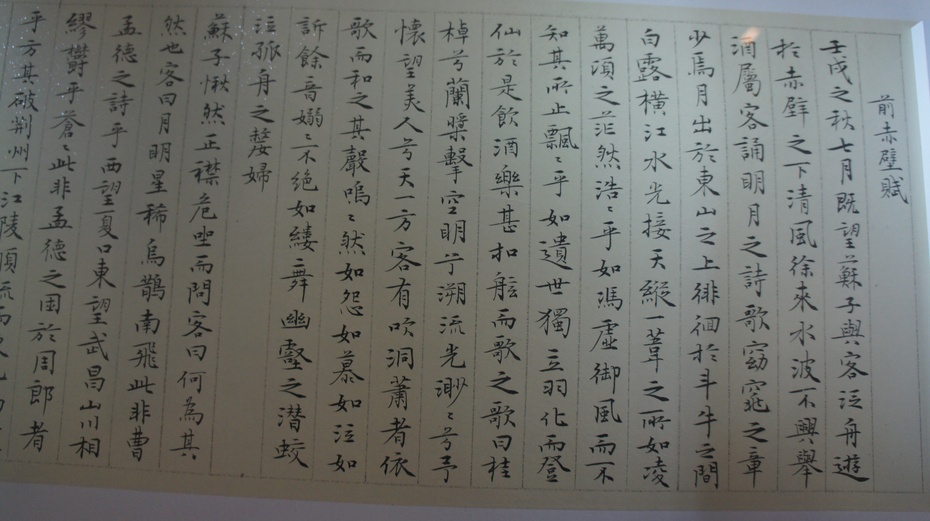 前赤壁賦
壬戌之秋七月既望蘇子與客泛舟遊
於赤壁之下清風徐來水波不興舉
酒屬客誦明月之詩歌窈窕之章
少焉月出於東山之上徘徊於斗牛之間
白露橫江水光接天縱一葦之所如凌
萬頃之茫然浩〻乎如馮虛御風而不
知其所止飄〻乎如遺世獨立羽化而登
仙於是飲酒樂甚扣舷而歌之歌曰桂
棹兮蘭槳擊空明兮溯流光渺〻兮予
懷望美人兮天一方客有吹洞蕭者依
歌而和之其聲嗚〻然如怨如慕如泣如
訴餘音嫋〻不絕如縷舞幽壑之潛蛟
泣孤舟之嫠婦
蘇子愀然正襟危坐而問客曰何為其
然也客曰月明星稀烏鵲南飛此非曹
孟德之詩乎西望夏口東望武昌山川相
繆鬱乎蒼〻此非孟德之困於周郎者
乎方其破荊州下江陵順流而